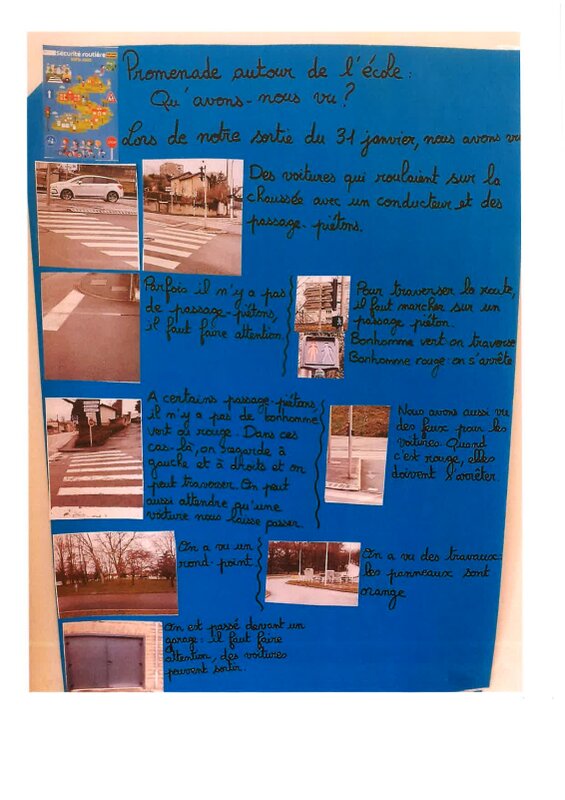 Sécurité routière
Promenade autour de l'école :
Qu'avons-nous vu ?
Lors de notre sortie du 31 janvier, nous avons vu
Des voitures qui roulaient sur la
chaussée avec un conducteur et des
passage-piétons.
Parfois il n'y a pas
de passage-piétons,
il faut faire attention.
Pour traverser la route,
il faut marcher sur un
passage piéton.
Bonhomme vert on traverse
Bonhomme rouge on s'arrête
A certains passage-piétons,
il n'y a pas de bonhomme
vert ou rouge. Dans ces
cas-là, on regarde à
gauche et à droite et on
peut traverser. On peut
aussi attendre qu'une
voiture nous laisse passer.
Nous avons aussi vu
des feux pour les
voitures. Quand
c'est rouge, elles
doivent s'arrêter.
On a vu un
rond-point.
On a vu des travaux :
les panneaux sont
orange
On est passé devant un
garage : il faut faire
attention, des voitures
peuvent sortir.